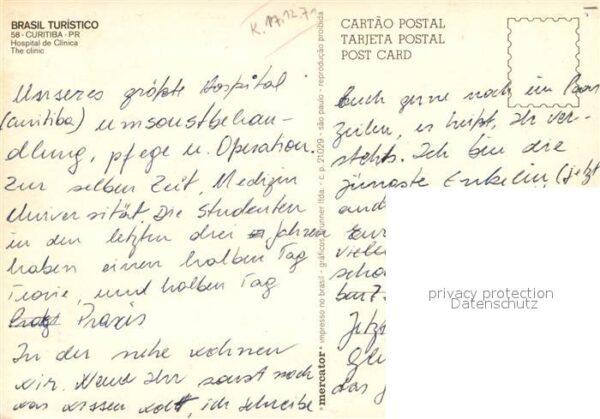 BRASIL TURÍSTICO
58 - CURITIBA - PR
Hospital de Clínica
The clinic
K. 17.12.71
CARTÃO POSTAL
TARJETA POSTAL
POST CARD
Unseres größte Hospital
(Curitiba) umsonstbehan-
dlung, pflege u. Operation.
Zur selben Zeit, Medizin
Universität. Die Studenten
in den letzten drei Jahren
haben einen halben Tag
Teorie, und halben Tag
Praxis
In der nehe wohnen
wir. Wenn Ihr sonst noch
was wissen wollt, ich schreibe
mercator® - impresso no brasil - gráficos brunner ltda. - c. p. 21.029 - são paulo - reprodução proibida
Euch gerne noch ein Paar
Zeilen, es heißt, Ihr ver-
stehts. Ich bin die
jüngste Enkelin, (jetzt
viele
Jetz
das
privacy protection
Datenschutz